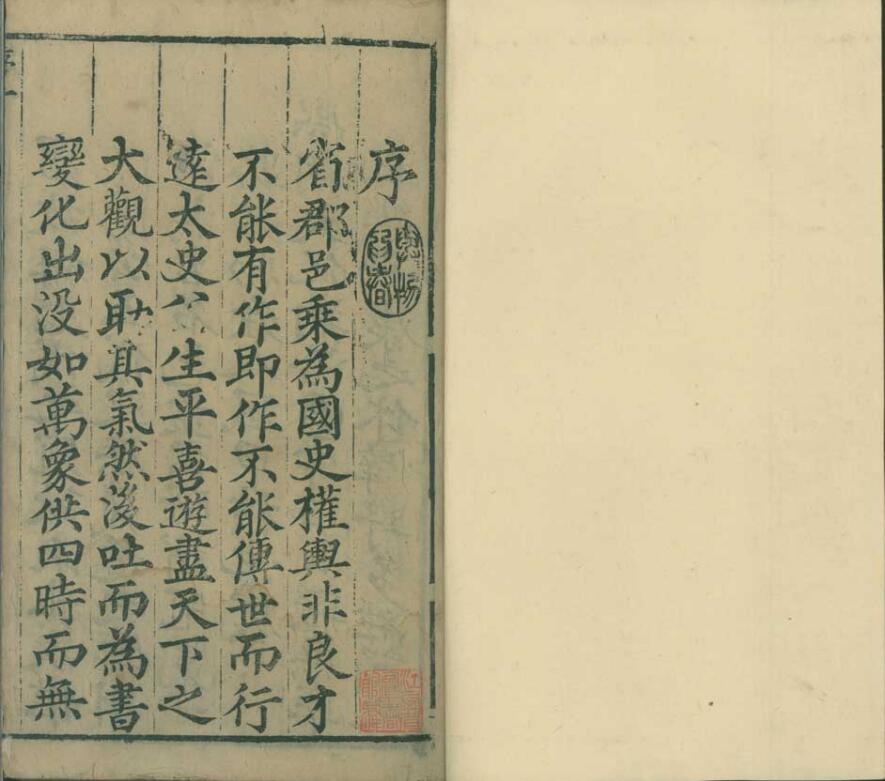 序
與物皆春
省郡邑乘為國史權輿非良才
不能有作即作不能傳世而行
遠太史公生平喜遊盡天下之
大觀以助其氣然後吐而為書
變化出没如萬象供四時而無
序一